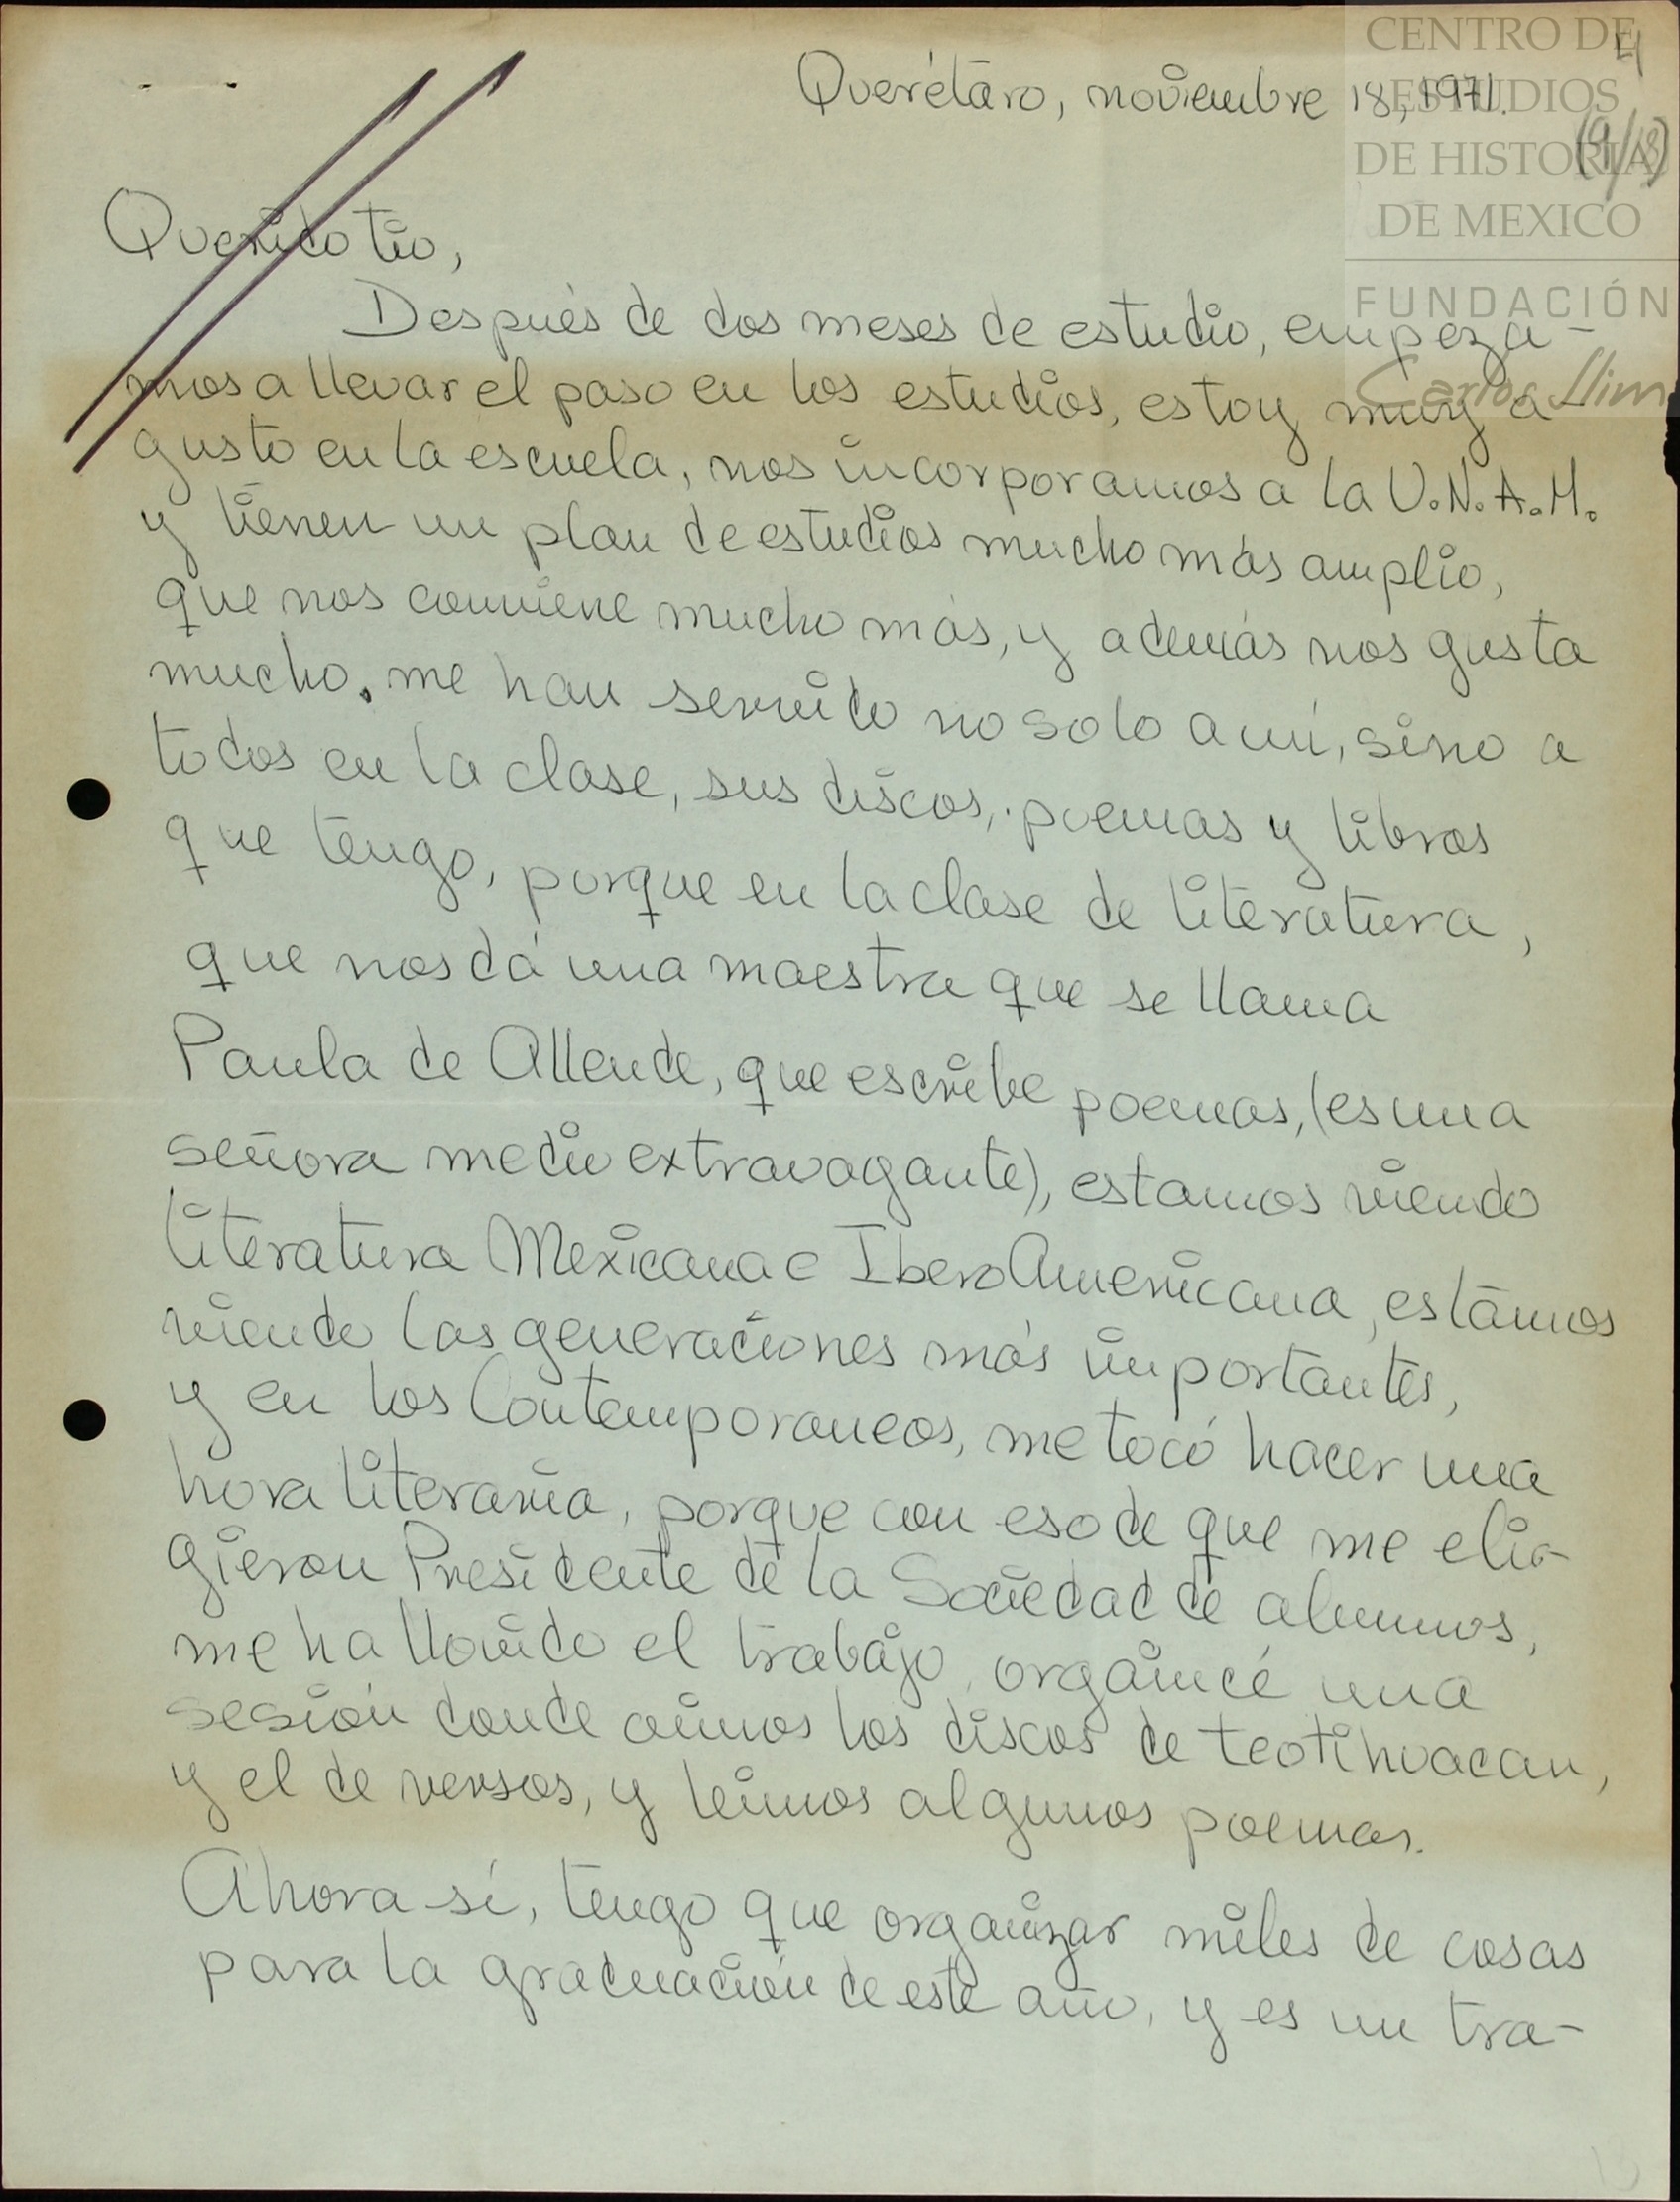 CENTRO DE
ESTUDIOS
DE HISTORIA
DE MEXICO
FUNDACIÓN
Carlos Slim
4
(9/18)
Querétaro, noviembre 18, 1971.
Querido tío,
Después de dos meses de estudio, empeza-
mos a llevar el paso en los estudios, estoy muy a-
gusto en la escuela, nos incorporamos a la U.N.A.M.
y tienen un plan de estudios mucho más amplio,
que nos conviene mucho más, y además nos gusta
mucho. me han servido no solo a mí, sino a
todos en la clase, sus discos, poemas y libros
que tengo, porque en la clase de literatura,
que nos dá una maestra que se llama
Paula de Allende, que escribe poemas, (es una
señora medio extravagante), estamos viendo
literatura Mexicana e IberoAmericana, estámos
viendo las generaciones más importantes,
y en los Contemporaneos, me tocó hacer una
hora literaria, porque con eso de que me eli-
gieron Presidente de la Sociedad de alumnos,
me ha llovido el trabajo, organicé una
sesión donde oimos los discos de teotihuacan,
y el de versos, y leimos algunos poemas.
Ahora sí, tengo que organizar miles de cosas
para la graduación de este año, y es un tra-
13